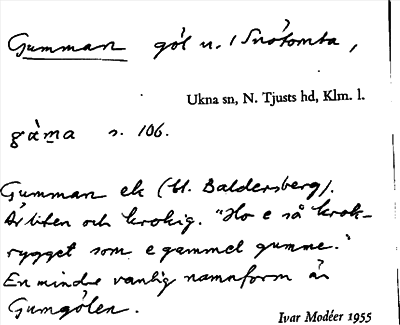 Gumman göl n. i Snötomta,
Ukna sn, N. Tjusts hd, Klm. l.
s. 106.
Gumman ek (bl. Baldersberg).
Är liten och krokig. "Ho e så krok-
rygget som e gammel gumme."
En mindre vanlig namnform är
Gumgölen.
Ivar Modéer 1955